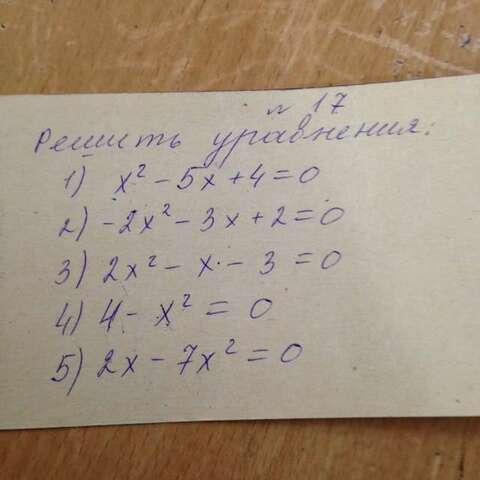 № 17
Решить уравнения:
1) x² - 5x + 4 = 0
2) -2x² - 3x + 2 = 0
3) 2x² - x - 3 = 0
4) 4 - x² = 0
5) 2x - 7x² = 0